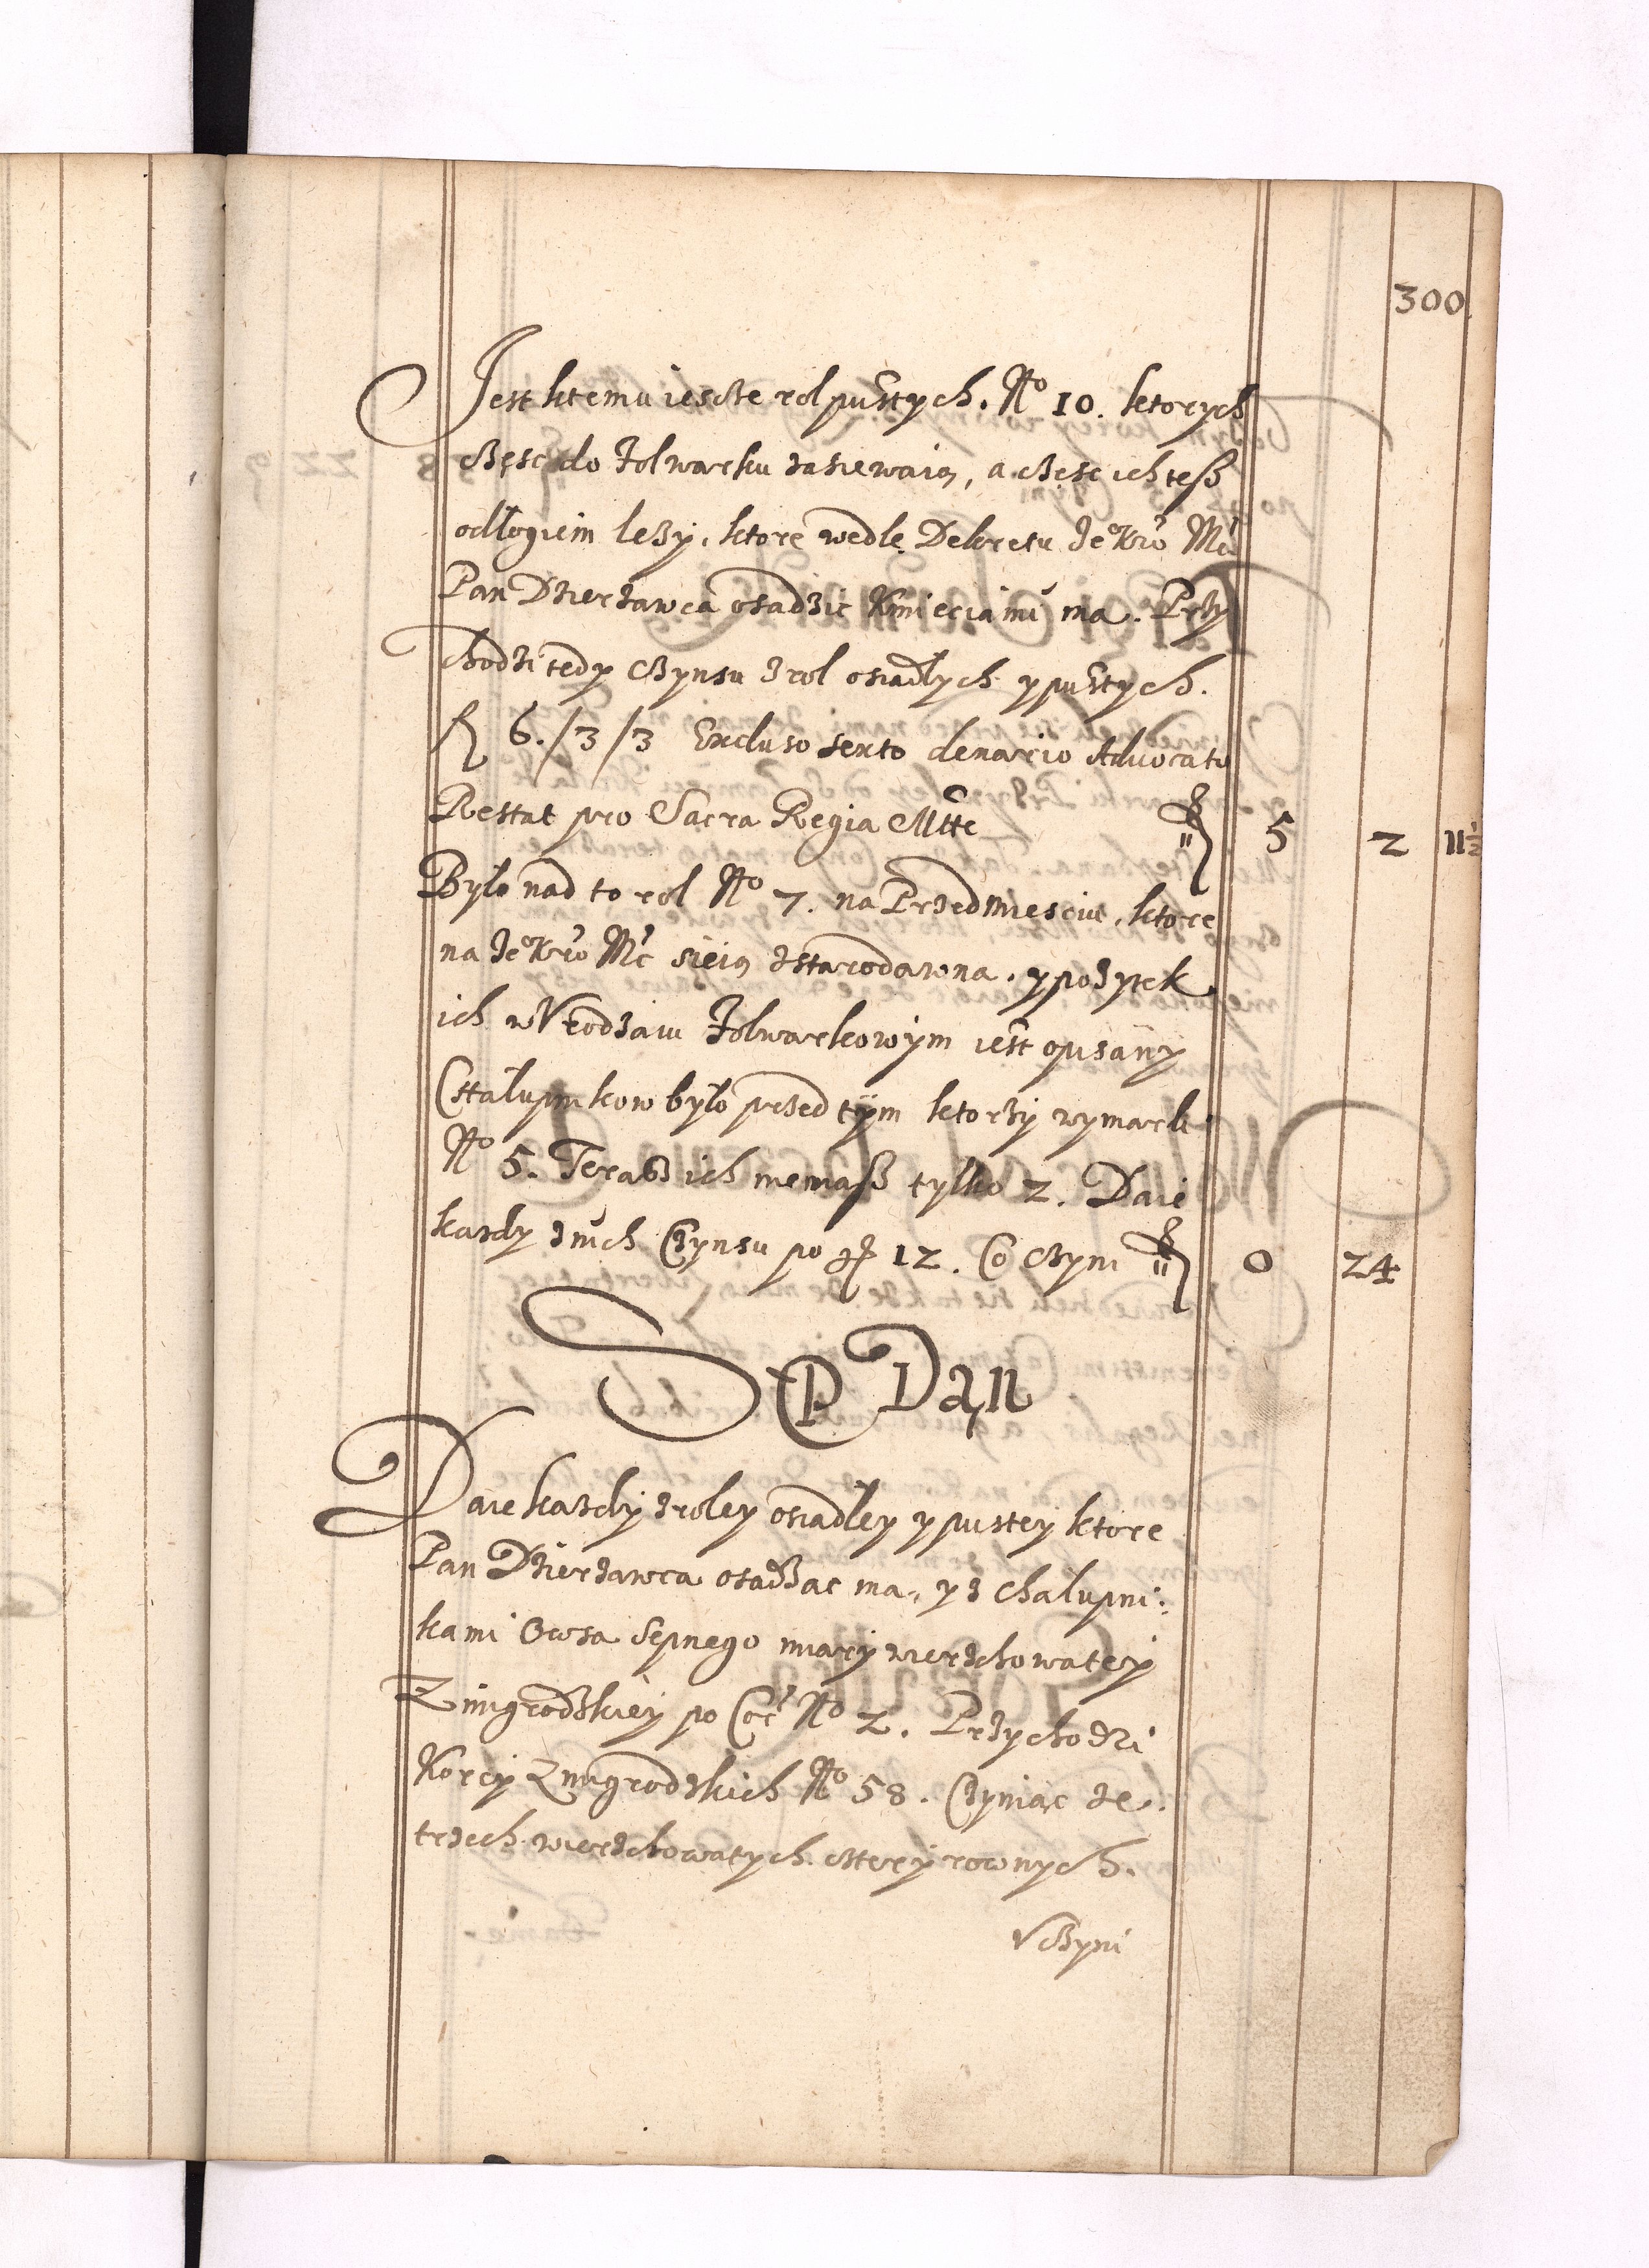 300
Jest ktemu iescze rol pustych. No 10. ktorych
częsc do folwarku zasiewaią, a częsc ich tesz
odłogiem leży, ktore wedle Dekretu Je° Kro Mci
Pan Dzierzawca osadzic Kmieciami ma. Przy
chodzi tedy czynsu z rol osiadłych y pustych.
fl 6./3/3 Excluso sexto denario Advocati
Restat pro Sacra Regia Mtte fl 5 2 11½
Było nad to rol No 7. na Przedmiesciu, ktore
na Je° Kro Mc sieią zstarodawna, y pożytek
ich w Vrodzaiu folwarkowym iest opisany
Chałupnikow było przed tym ktorzy wymarli
No 5. Terasz ich niemasz tylko 2. Daie
kazdy znich Czynsu po gr 12. Co czyni fl 0 24
SEP Dan
Daie kazdy z roley osiadley y pustey ktore
Pan Dzierzawca osadzac ma, y z chałupni:
kami Owsa Sepnego miary wierzchowatey
Zmigrodzkiey po Cor No 2. Przychodzi
Korcy Zmigrodzkich No 58. Czyniąc ze
trzech wierzchowatych cztery rownych.
Vczyni